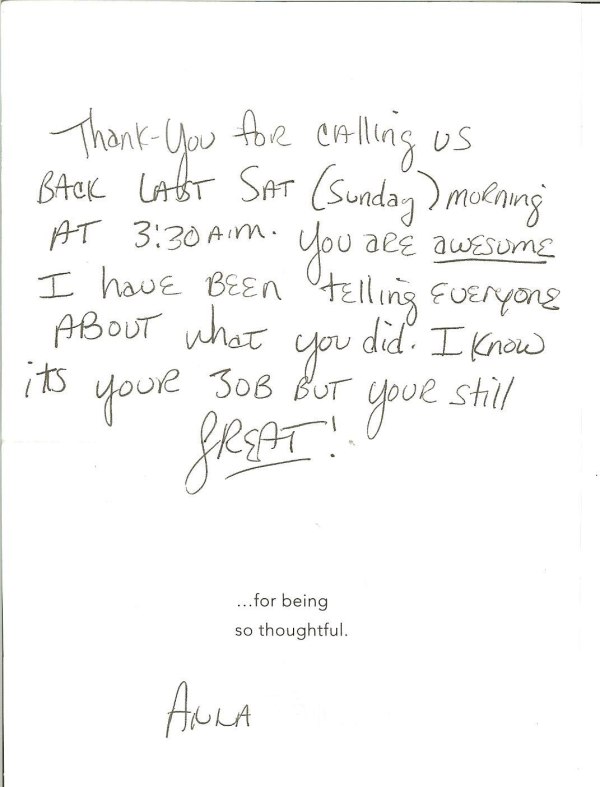 Thank-You for calling us
BACK LAST SAT (Sunday) morning
AT 3:30 A.m. You are awesome
I have BEEn telling everyone
ABOUT what you did. I know
its your JOB BUT your still
GREAT!
...for being
so thoughtful.
Anna